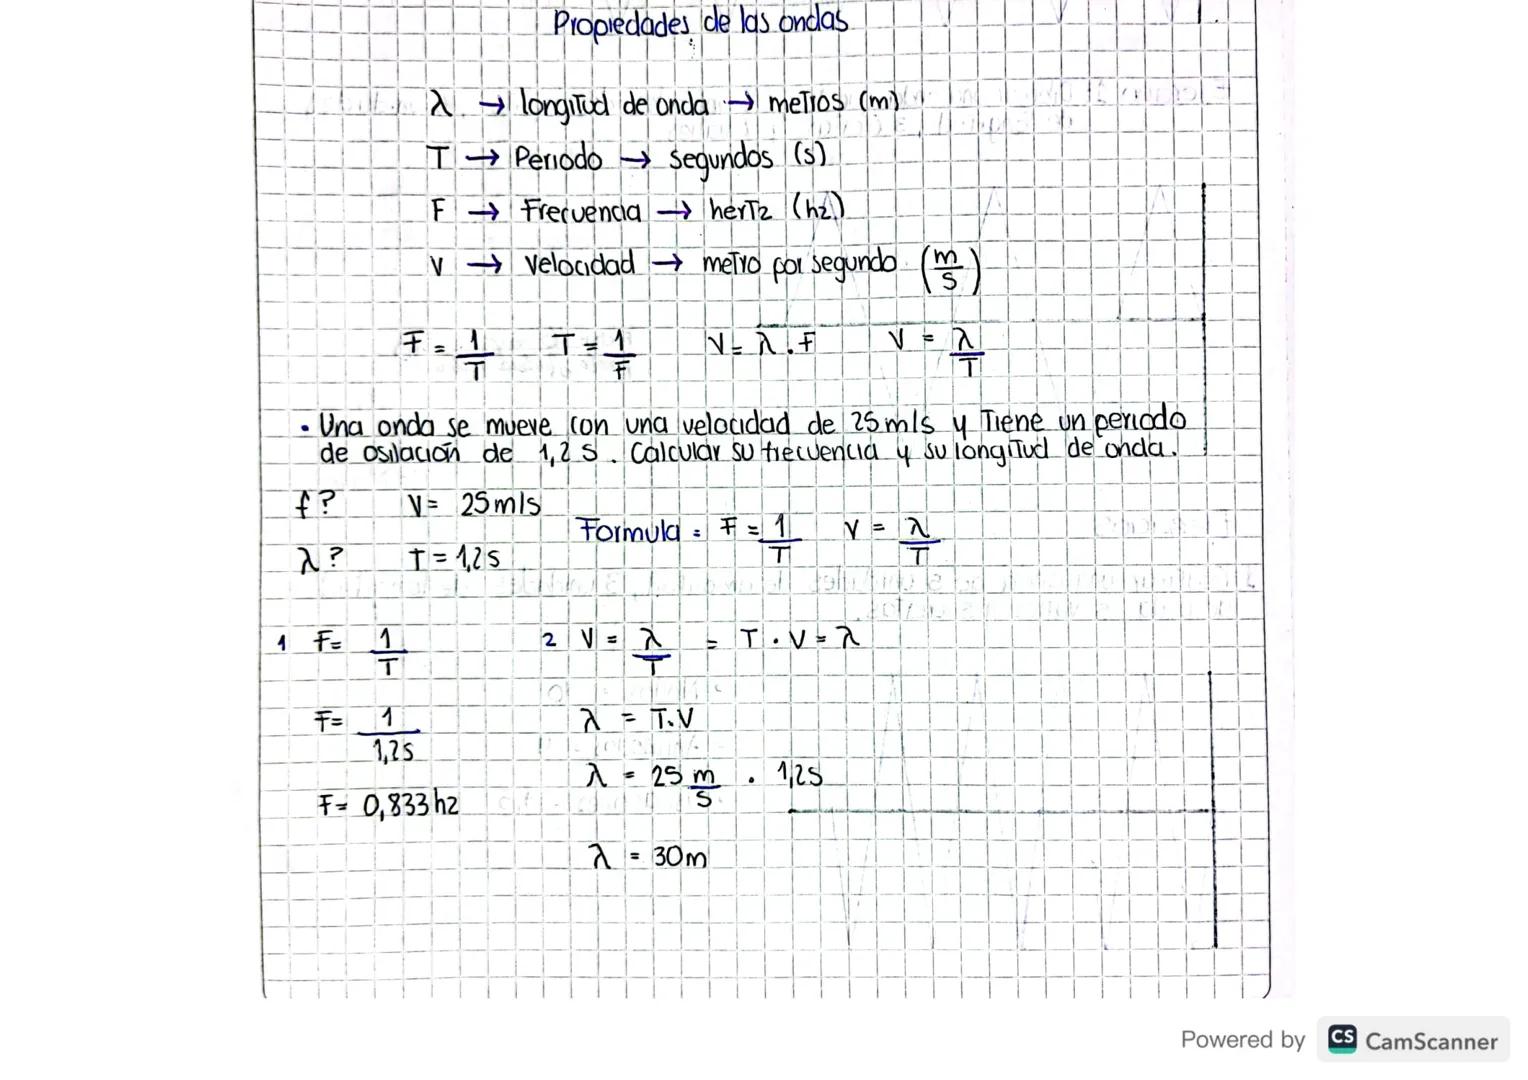 Propiedades de las ondas
λ → longitud de onda → metros (m)
T → Periodo → segundos (s)
F → Frecuencia → hertz (hz)
V → velocidad → metro por segundo (m/s)
F = 1/T T = 1/F V = λ . F V = λ/T
• Una onda se mueve con una velocidad de 25 m/s y Tiene un periodo
de osilación de 1,2 s. Calcular su frecuencia y su longitud de onda.
f? V = 25 m/s
Formula = F = 1/T V = λ/T
λ? T = 1,2 s
1 F = 1/T 2 V = λ/T = T . V = λ
F = 1/1,2s λ = T.V
λ = 25 m/s . 1,2s
F = 0,833 hz
λ = 30m
Powered by CS CamScanner